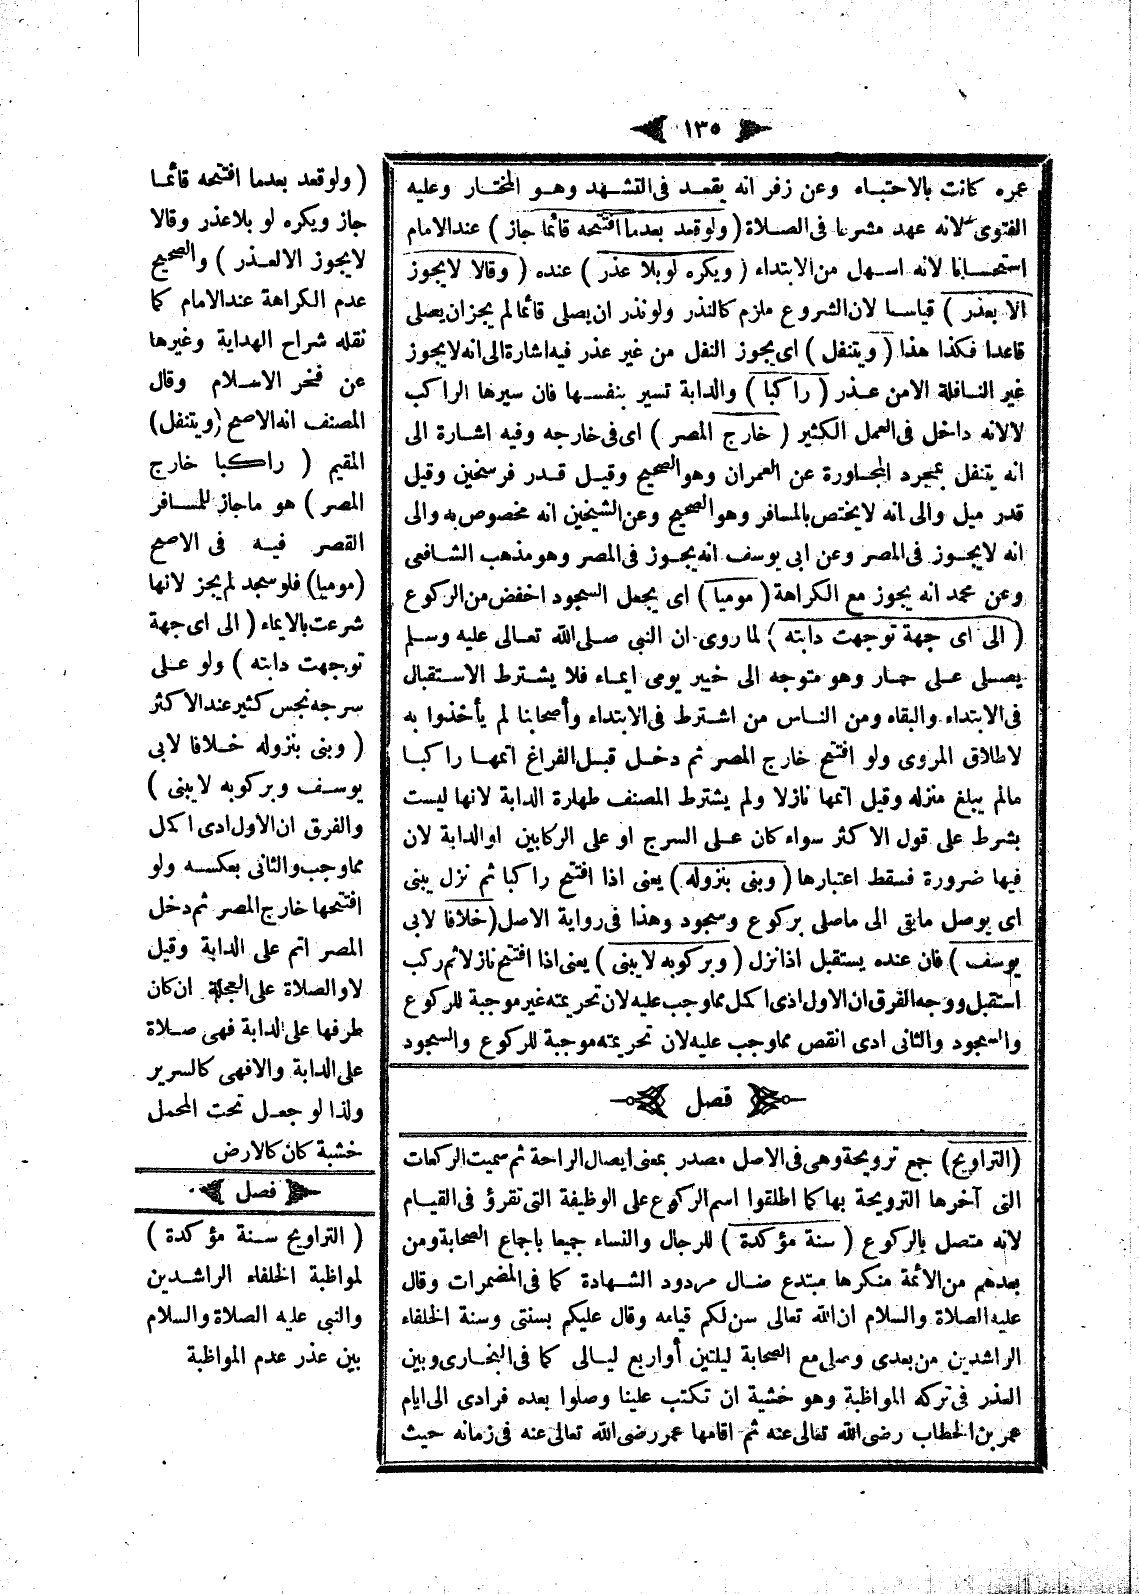 ١٣٥
عمره كانت بالاحتباء وعن زفر انه يقعد فى التشهد وهو المختار وعليه
الفتوى لانه عهد مشروعا فى الصلاة ( ولو قعد بعدما افتتحه قائما جاز ) عند الامام
استحسانا لانه اسهل من الابتداء ( ويكره لو بلا عذر ) عنده ( وقالا لا يجوز
الا بعذر ) قياسا لان الشروع ملزم كالنذر ولو نذر ان يصلى قائما لم يجز ان يصلى
قاعدا فكذا هذا ( ويتنفل ) اى يجوز النفل من غير عذر فيه اشارة الى انه لا يجوز
غير النافلة الا من عذر ( راكبا ) والدابة تسير بنفسها فان سيرها الراكب
لا لانه داخل فى العمل الكثير ( خارج المصر ) اى فى خارجه وفيه اشارة الى
انه يتنفل بمجرد المجاورة عن العمران وهو الصحيح وقيل قدر فرسخين وقيل
قدر ميل والى انه لا يختص بالمسافر وهو الصحيح وعن الشيخين انه مخصوص به والى
انه لا يجوز فى المصر وعن ابى يوسف انه يجوز فى المصر وهو مذهب الشافعى
وعن محمد انه يجوز مع الكراهة ( موميا ) اى يجعل السجود اخفض من الركوع
( الى اى جهة توجهت دابته ) لما روى ان النبى صلى الله تعالى عليه وسلم
يصلى على حمار وهو متوجه الى خيبر يومى ايماء فلا يشترط الاستقبال
فى الابتداء والبقاء ومن الناس من اشترط فى الابتداء وأصحابنا لم يأخذوا به
لاطلاق المروى ولو افتتح خارج المصر ثم دخل قبل الفراغ اتمها راكبا
مالم يبلغ منزله وقيل اتمها نازلا ولم يشترط المصنف طهارة الدابة لانها ليست
بشرط على قول الاكثر سواء كان على السرج او على الركابين او الدابة لان
فيها ضرورة فسقط اعتبارها ( وبنى بنزوله ) يعنى اذا افتتح راكبا ثم نزل يبنى
اى يوصل مابقى الى ماصلى بركوع وسجود وهذا فى رواية الاصل ( خلافا لابى
يوسف ) فان عنده يستقبل اذا نزل ( وبركوبه لا يبنى ) يعنى اذا افتتح نازلا ثم ركب
استقبل ووجه الفرق ان الاول ادى اكمل مماوجب عليه لان تحريمته غير موجبة للركوع
والسجود والثانى ادى انقص مماوجب عليه لان تحريمته موجبة للركوع والسجود
فصل
( التراويح ) جمع ترويحة وهى فى الاصل مصدر بمعنى ايصال الراحة ثم سميت الركعات
التى آخرها الترويحة بها كما اطلقوا اسم الركوع على الوظيفة التى تقرؤ فى القيام
لانه متصل بالركوع ( سنة مؤكدة ) للرجال والنساء جميعا باجماع الصحابة ومن
بعدهم من الأئمة منكرها مبتدع ضال مردود الشهادة كما فى المضمرات وقال
عليه الصلاة والسلام ان الله تعالى سن لكم قيامه وقال عليكم بسنتى وسنة الخلفاء
الراشدين من بعدى وصلى مع الصحابة ليلتين أواربع ليالى كما فى البخارى وبين
العذر فى تركه المواظبة وهو خشية ان تكتب علينا وصلوا بعده فرادى الى ايام
عمر بن الخطاب رضى الله تعالى عنه ثم اقامها عمر رضى الله تعالى عنه فى زمانه حيث
( ولو قعد بعدما افتتحه قائما
جاز ويكره لو بلا عذر وقالا
لا يجوز الا لعذر ) والصحيح
عدم الكراهة عند الامام كما
نقله شراح الهداية وغيرها
عن فخر الاسلام وقال
المصنف انه الاصح ( ويتنفل )
المقيم ( راكبا خارج
المصر ) هو ماجاز للمسافر
القصر فيه فى الاصح
( موميا ) فلو سجد لم يجز لانها
شرعت بالايماء ( الى اى جهة
توجهت دابته ) ولو على
سرجه نجس كثير عند الاكثر
( وبنى بنزوله خلافا لابى
يوسف وبركوبه لا يبنى )
والفرق ان الاول ادى اكمل
مماوجب والثانى بعكسه ولو
افتتحها خارج المصر ثم دخل
المصر اتم على الدابة وقيل
لا والصلاة على العجلة ان كان
طرفها على الدابة فهى صلاة
على الدابة والا فهى كالسرير
ولذا لو جعل تحت المحمل
خشبة كان كالارض
فصل
( التراويح سنة مؤكدة )
لمواظبة الخلفاء الراشدين
والنبى عليه الصلاة والسلام
بين عذر عدم المواظبة